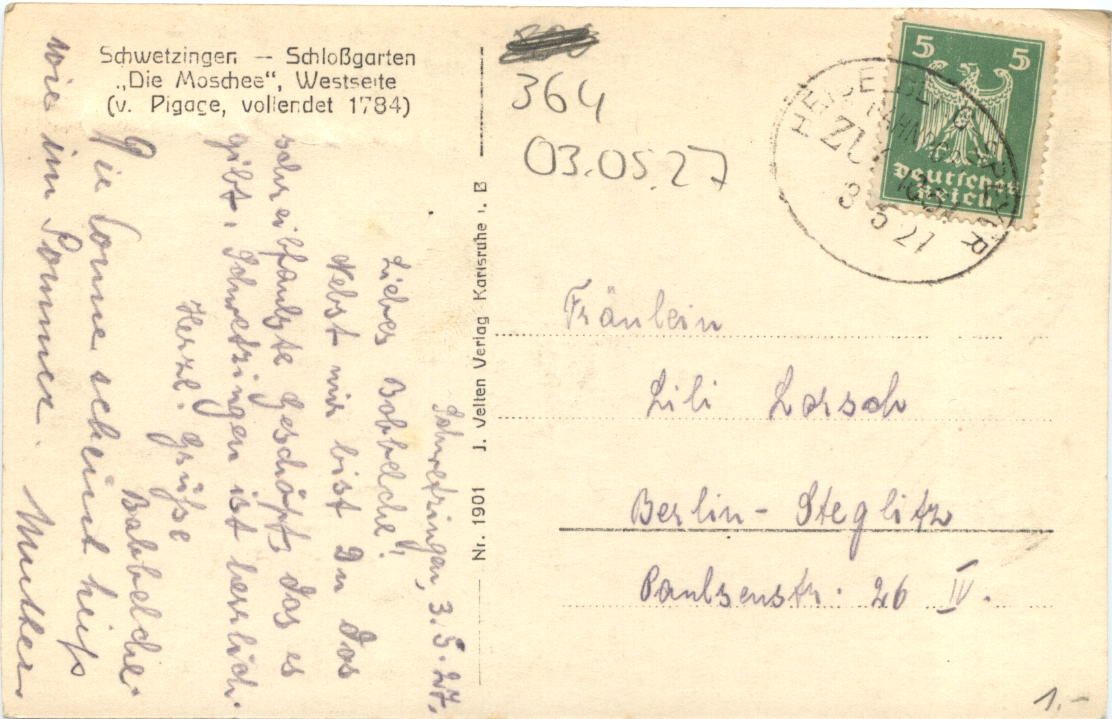 Schwetzingen — Schloßgarten
„Die Moschee“, Westseite
(v. Pigage, vollendet 1784)
364
03.05.27
5 5
Deutsches
Reich
HEIDELBERG SPEYER
BAHNPOST
ZUG
3 5 27
Nr. 1901 J. Velten Verlag Karlsruhe i. B
Schwetzingen, 3.5.27.
Liebes Babbelche!
Nebst mir bist Du das
schreibfaulste Geschöpf, das es
gibt. Schwetzingen ist herrlich.
Herzl. Grüße
Babbelche.
Die Sonne scheint heiß
wie im Sommer. Mutter
Fräulein
Lili Lorsch
Berlin-Steglitz
Paulsenstr. 26 IV.
1.-